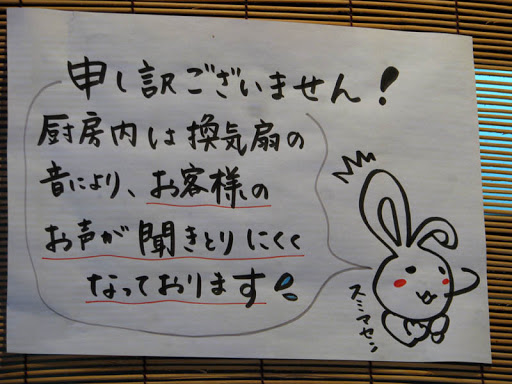 申し訳ございません！
厨房内は換気扇の
音により、お客様の
お声が聞きとりにくく
なっております
スミマセン